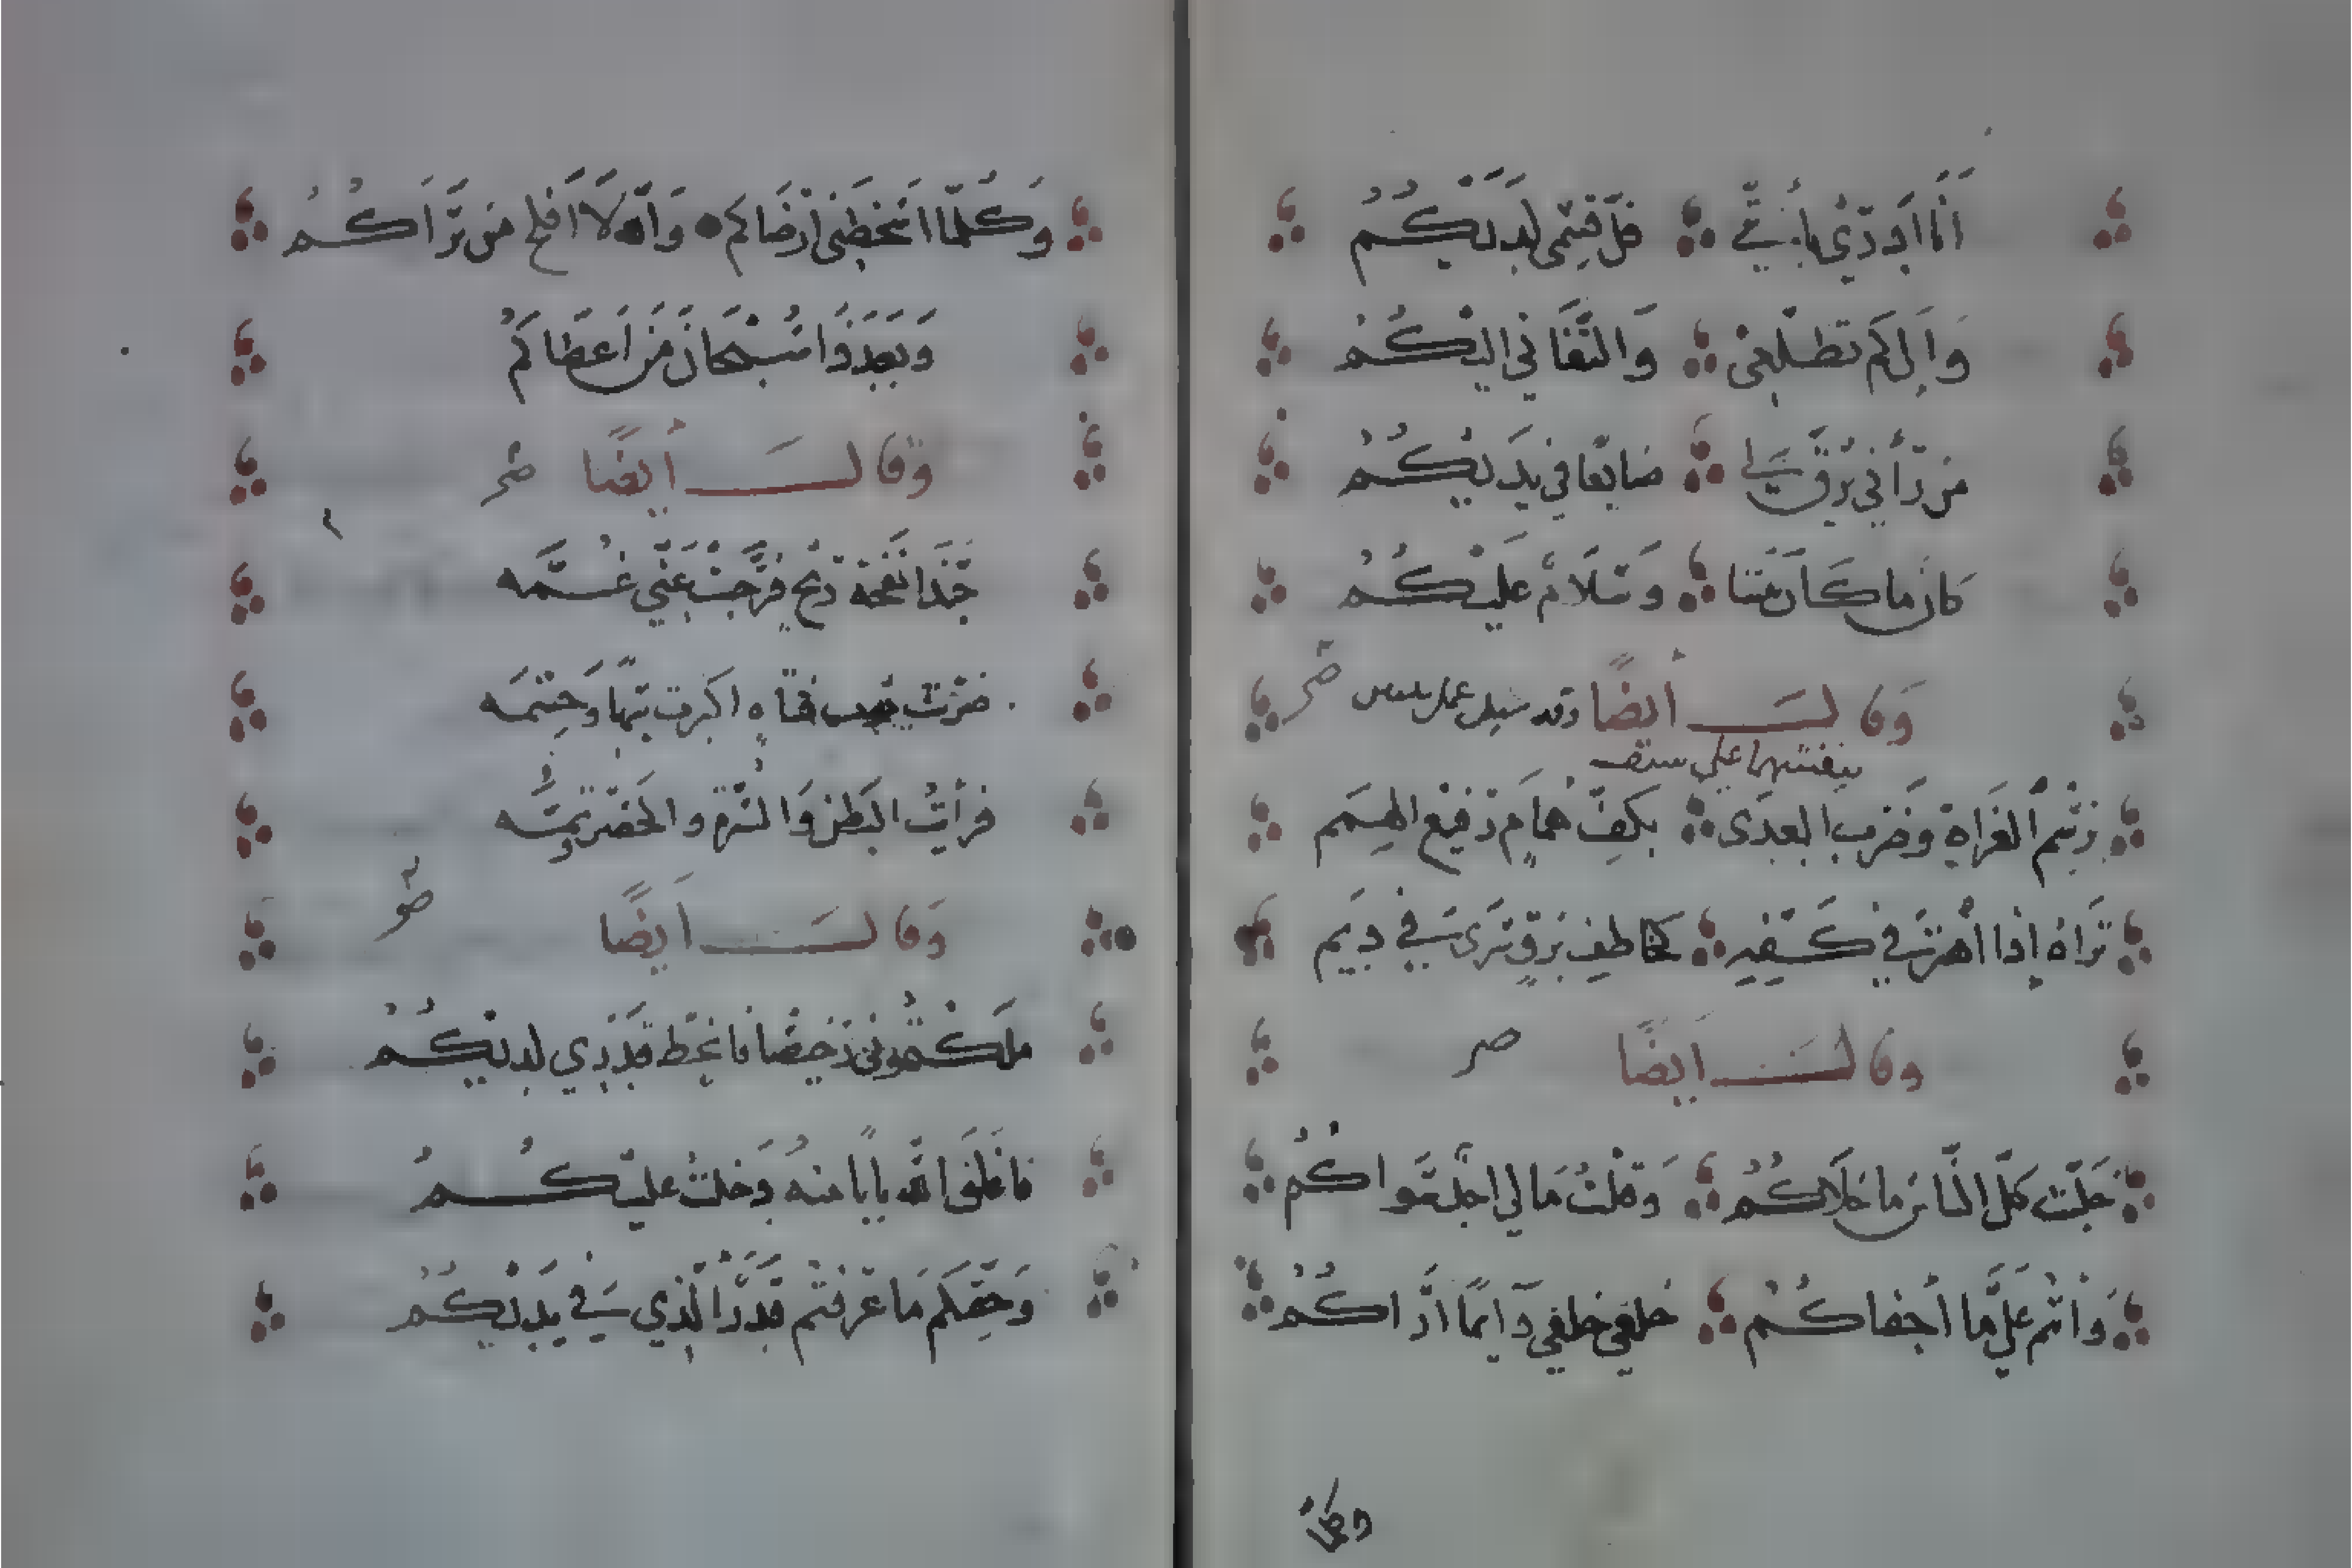 أَنَا أَدْرِي بِأُنِّي فَلَّ قِسْمِي لَدَيْكُمُ
وَإِلَى كَمْ تَطَلُّعِي وَالْتِفَاتِي إِلَيْكُمُ
مَن رَأَى فِي رِقَّتِي ضَايِعًا فِي يَدَيْكُمُ
كَانَ مَا كَانَ بَيْنَنَا وَسَلَامٌ عَلَيْكُمُ
وقال أيضًا وقد سيل عمل بيتين صح
ينقشهما على سيف
بِرَسْمِ الْغَزَاةِ وَضَرْبِ الْعِدَى بِكَفِّ هُمَامٍ رَفِيعِ الْهِمَم
تَرَاهُ إِذَا اهْتَزَّ فِي كَفِّهِ كَخَاطِفِ بَرْقٍ سَرَى فِي دِيَم
وقال أيضًا صح
خَلَّيْت كُلَّ النَّاسِ مَا خَلَاكُمُ وَقُلْتُ مَا لِي أَحَدٌ سِوَاكُمُ
وَأَنْتُمُ عَلَيَّ مَا أَجْفَاكُمُ خلفي خلفي دَايِمًا أَرَاكُمُ
وكلما
وَكُلَّمَا أَسْخَطَنِي أَرْضَاكُم وَاللَّه لَا أَفْلَحَ مَن يَرَاكُمُ
وَبَعْدَ ذَا سُبْحَانَ مَن أَعْطَاكُمُ
وقال أيضًا صح
حَبَّذَا نَفْحَةُ رِيحٍ فَرَّجَتْ عَنِّي غُمَّه
ضربت ثوب فتاةٍ أكثرت تيهًا وحشمه
فَرَأَيْتُ الْبَطْنَ وَالسُّرَّةَ وَالْخَصْرَ وَثَمَّه
وقال أيضًا صح
مَلَكْتُمُونِي رَخِيصًا فَانْحَطَّ قَدْرِي لَدَيْكُمُ
فَأَغْلَقَ اللَّه بَابًا مِنْهُ دَخَلْتُ عَلَيْكُمُ
وَحَقِّكُم مَا عَرَفْتُم قَدْرَ الَّذِي فِي يَدَيْكُمُ